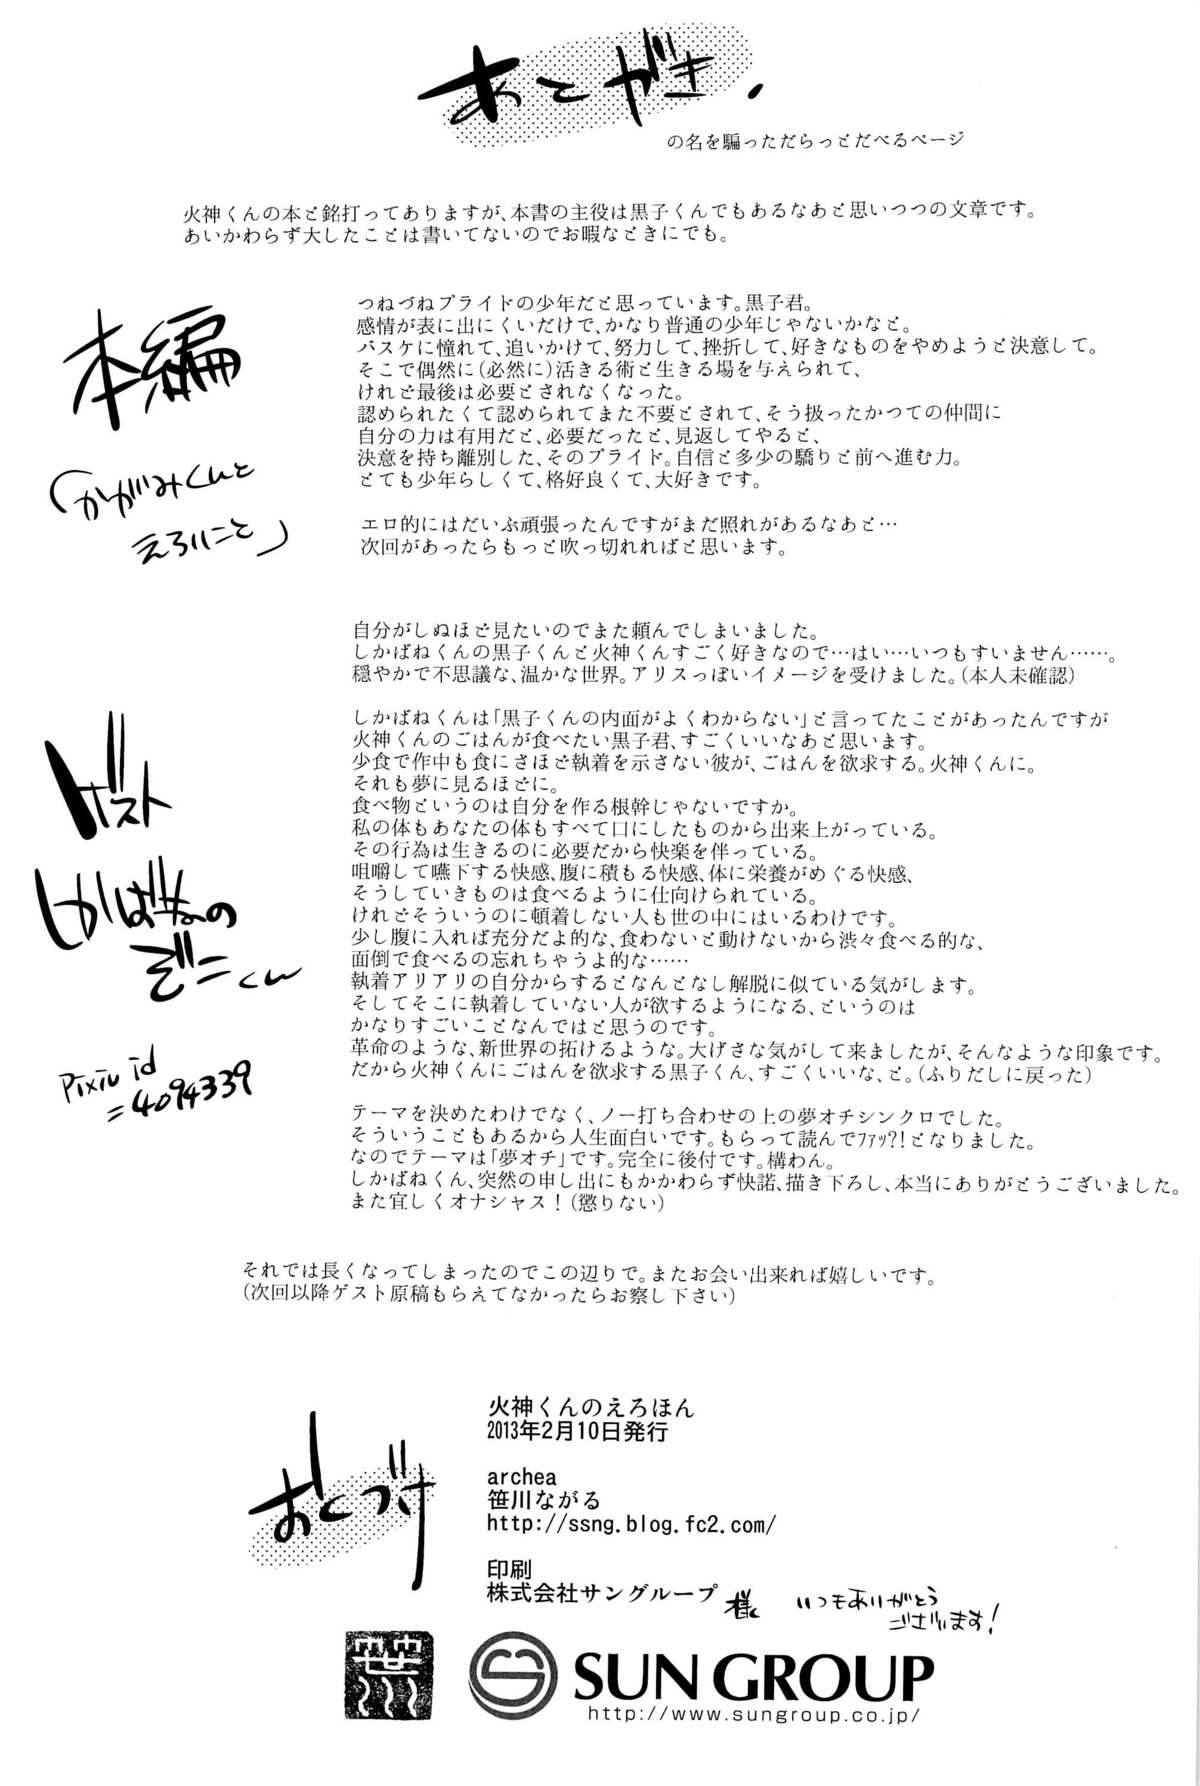 あとがき.
の名を騙っただらっとだべるページ
火神くんの本と銘打ってありますが、本書の主役は黒子くんでもあるなあと思いつつの文章です。
あいかわらず大したことは書いてないのでお暇なときにでも。
本編
「かがみくんと
えろいこと」
つねづねプライドの少年だと思っています。黒子君。
感情が表に出にくいだけで、かなり普通の少年じゃないかなと。
バスケに憧れて、追いかけて、努力して、挫折して、好きなものをやめようと決意して。
そこで偶然に(必然に)活きる術と生きる場を与えられて、
けれど最後は必要とされなくなった。
認められたくて認められてまた不要とされて、そう扱ったかつての仲間に
自分の力は有用だと、必要だったと、見返してやると、
決意を持ち離別した、そのプライド。自信と多少の驕りと前へ進む力。
とても少年らしくて、格好良くて、大好きです。
エロ的にはだいぶ頑張ったんですがまだ照れがあるなあと…
次回があったらもっと吹っ切れればと思います。
ゲスト
しかばねの
ぞニくん
Pixiv id
=4094339
自分がしぬほど見たいのでまた頼んでしまいました。
しかばねくんの黒子くんと火神くんすごく好きなので…はい…いつもすいません……。
穏やかで不思議な、温かな世界。アリスっぽいイメージを受けました。(本人未確認)
しかばねくんは「黒子くんの内面がよくわからない」と言ってたことがあったんですが
火神くんのごはんが食べたい黒子君、すごくいいなあと思います。
少食で作中も食にさほど執着を示さない彼が、ごはんを欲求する。火神くんに。
それも夢に見るほどに。
食べ物というのは自分を作る根幹じゃないですか。
私の体もあなたの体もすべて口にしたものから出来上がっている。
その行為は生きるのに必要だから快楽を伴っている。
咀嚼して嚥下する快感、腹に積もる快感、体に栄養がめぐる快感、
そうしていきものは食べるように仕向けられている。
けれどそういうのに頓着しない人も世の中にはいるわけです。
少し腹に入れば充分だよ的な、食わないと動けないから渋々食べる的な、
面倒で食べるの忘れちゃうよ的な……
執着アリアリの自分からするとなんとなし解脱に似ている気がします。
そしてそこに執着していない人が欲するようになる、というのは
かなりすごいことなんではと思うのです。
革命のような、新世界の拓けるような。大げさな気がして来ましたが、そんなような印象です。
だから火神くんにごはんを欲求する黒子くん、すごくいいな、と。(ふりだしに戻った)
テーマを決めたわけでなく、ノー打ち合わせの上の夢オチシンクロでした。
そういうこともあるから人生面白いです。もらって読んでﾌｧｯ?!となりました。
なのでテーマは「夢オチ」です。完全に後付です。構わん。
しかばねくん、突然の申し出にもかかわらず快諾、描き下ろし、本当にありがとうございました。
また宜しくオナシャス！(懲りない)
それでは長くなってしまったのでこの辺りで。またお会い出来れば嬉しいです。
(次回以降ゲスト原稿もらえてなかったらお察し下さい)
おくづけ
火神くんのえろほん
2013年2月10日発行
archea
笹川ながる
http://ssng.blog.fc2.com/
印刷
株式会社サングループ 様 いつもありがとう
ございます!
笹川
SUN GROUP
http://www.sungroup.co.jp/